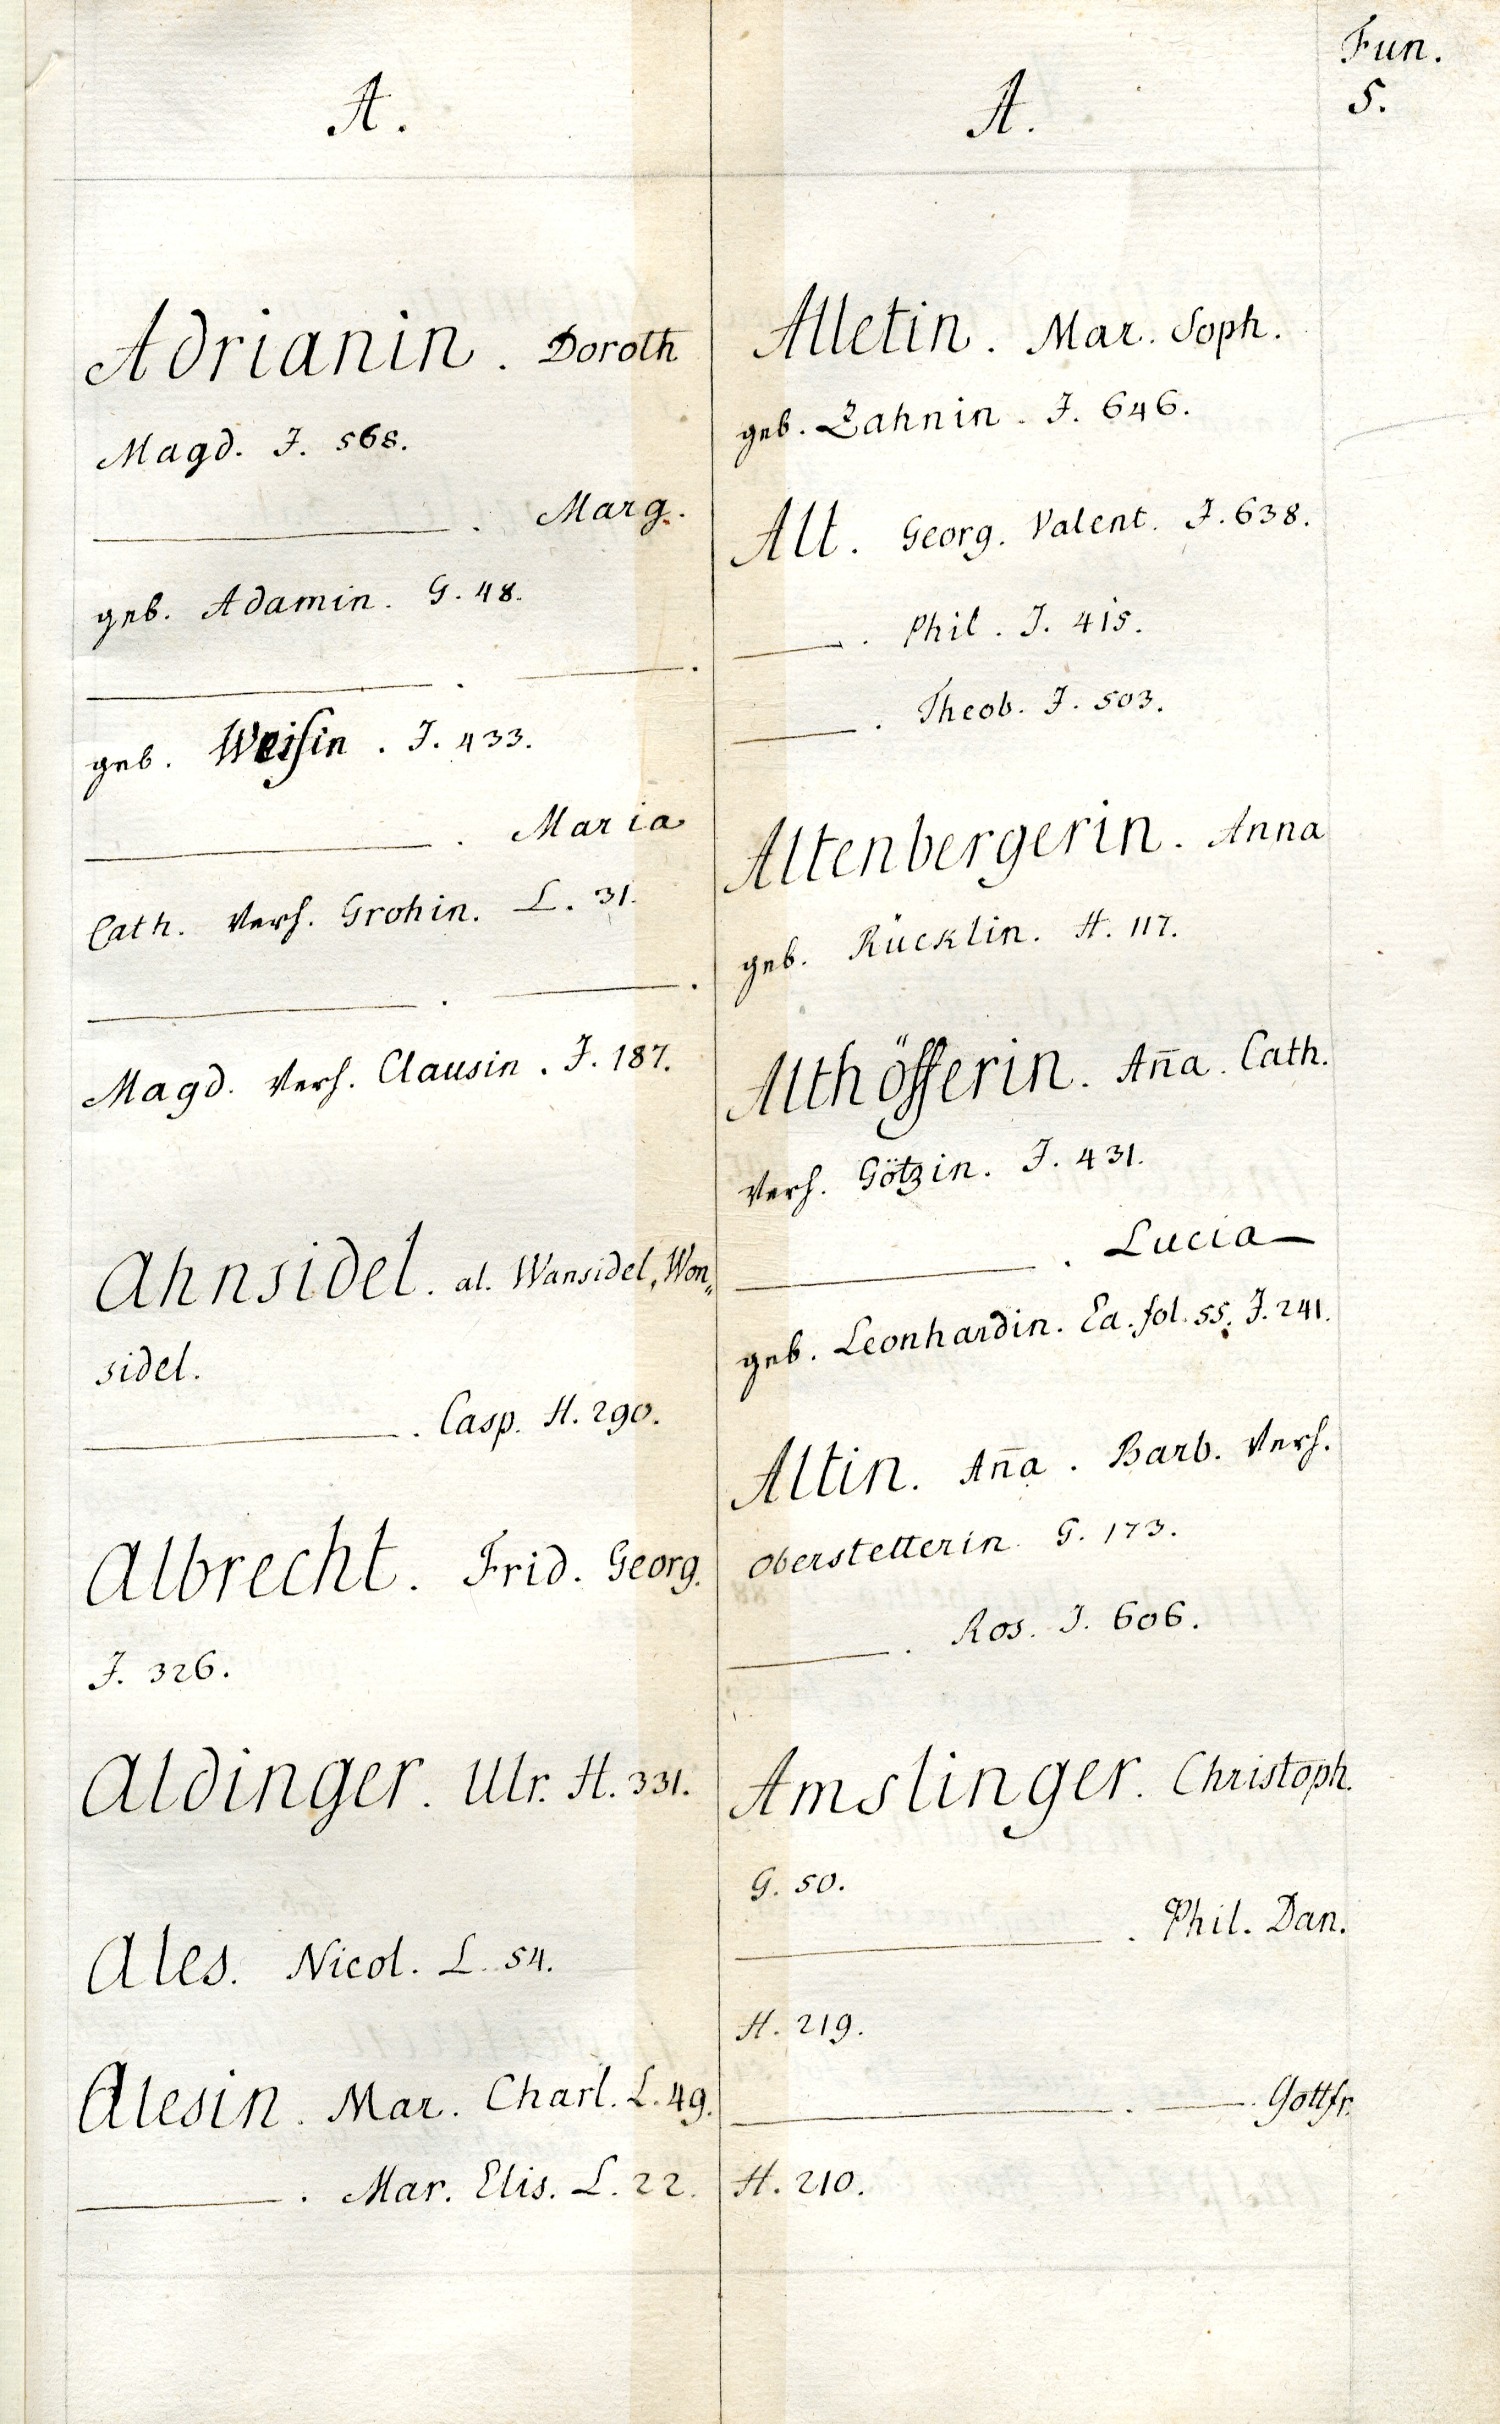 Fun.
5.
A.
Adrianin. Doroth
Magd. J. 568.
———. Marg.
geb. Adamin. G. 48.
———. ———.
geb. Weisin. J. 433.
———. Maria
Cath. Verh. Grohin. L. 31.
———. ———.
Magd. Verh. Clausin. J. 187.
Ahnsidel. al. Wansidel, Won„
sidel.
———. Casp. H. 290.
Albrecht. Frid. Georg.
J. 326.
Aldinger. Ulr. H. 331.
Ales. Nicol. L. 54.
Alesin. Mar. Charl. L. 49.
———. Mar. Elis. L. 22.
A.
Alletin. Mar. Soph.
geb. Zahnin. J. 646.
Alt. Georg. Valent. J. 638.
———. Phil. J. 415.
———. Theob. J. 503.
Altenbergerin. Anna
geb. Rücklin. H. 117.
Althöfferin. An̄a. Cath.
Verh. Götzin. J. 431.
———. Lucia—
geb. Leonhardin. Ea. fol. 55. J. 241.
Altin. An̄a. Barb. Verh.
Oberstetterin. G. 173.
———. Ros. J. 606.
Amslinger. Christoph.
G. 50.
———. Phil. Dan.
H. 219.
———. ———. Gottfr.
H. 210.